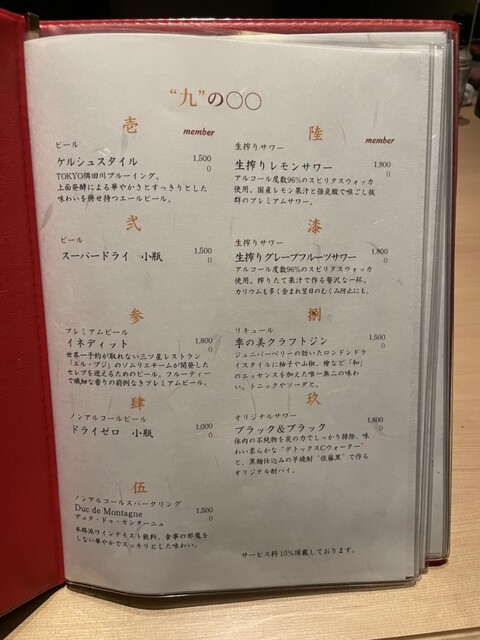 “九”の〇〇
壱
member
ビール
ケルシュスタイル 1,500
0
TOKYO隅田川ブルーイング。
上面発酵による華やかさとすっきりとした
味わいを併せ持つエールビール。
弐
ビール
スーパードライ 小瓶 1,500
0
参
プレミアムビール
イネディット 1,800
0
世界一予約が取れない三ツ星レストラン
「エル・ブジ」のソムリエチームが開発した
セレブを迎えるためのビール。フルーティー
で繊細な香りの前例なきプレミアムビール。
肆
ノンアルコールビール
ドライゼロ 小瓶 1,000
0
伍
ノンアルコールスパークリング
Duc de Montagne 1,500
0
デュク・ドゥ・モンターニュ
本格派ワインテイスト飲料。食事の邪魔を
しない華やかでスッキリとした味わい。
陸
member
生搾りサワー
生搾りレモンサワー 1,800
0
アルコール度数96%のスピリタスウォッカ
使用。国産レモン果汁と強炭酸で喉ごし抜
群のプレミアムサワー。
漆
生搾りサワー
生搾りグレープフルーツサワー 1,800
0
アルコール度数96%のスピリタスウォッカ
使用。搾りたて果汁で作る贅沢な一杯。
カリウムも多く含まれ翌日のむくみ防止にも。
捌
リキュール
季の美クラフトジン 1,500
0
ジュニパーベリーの効いたロンドンドラ
イスタイルに柚子や山椒、檜など「和」
のエッセンスを加えた唯一無二の味わ
い。トニックやソーダと。
玖
オリジナルサワー
ブラック&ブラック 1,800
0
体内の不純物を炭の力でしっかり排除。味
わい柔らかな“デトックスCウォーター”
と、黒麹仕込みの芋焼酎“佐藤黒”で作る
オリジナル酎ハイ。
サービス料10%頂戴しております。